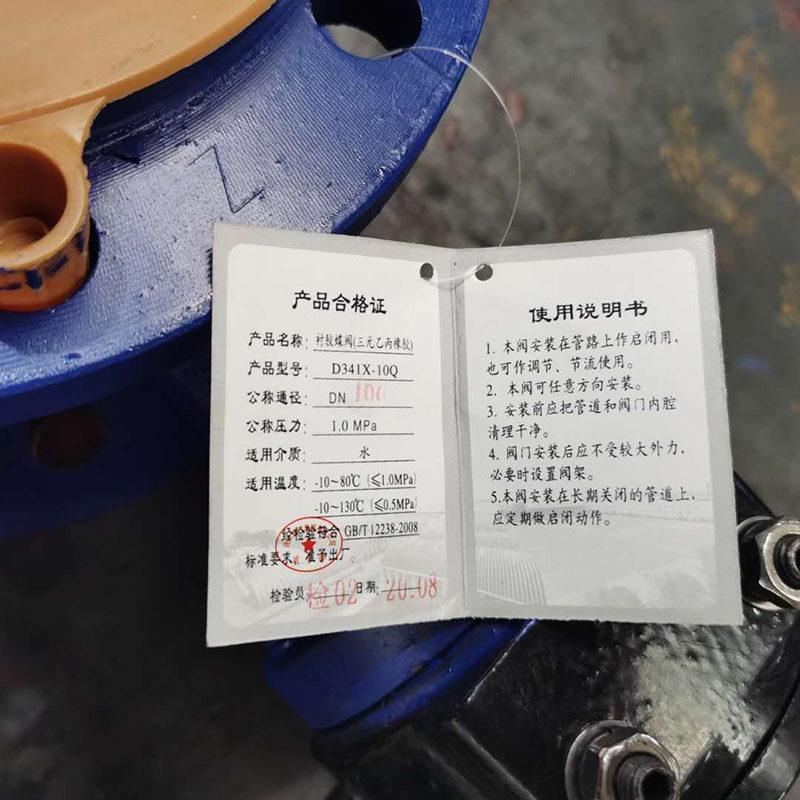 产品合格证
产品名称: 衬胶蝶阀(三元乙丙橡胶)
产品型号: D341X-10Q
公称通径: DN 100
公称压力: 1.0 MPa
适用介质: 水
适用温度: -10~80℃ (≤1.0MPa)
-10~130℃ (≤0.5MPa)
经检验符合 GB/T 12238-2008
标准要求，准予出厂。
检验员 检02 日期: 20.08
使用说明书
1. 本阀安装在管路上作启闭用，
也可作调节、节流使用。
2. 本阀可任意方向安装。
3. 安装前应把管道和阀门内腔
清理干净。
4. 阀门安装后应不受较大外力，
必要时设置阀架。
5.本阀安装在长期关闭的管道上，
应定期做启闭动作。